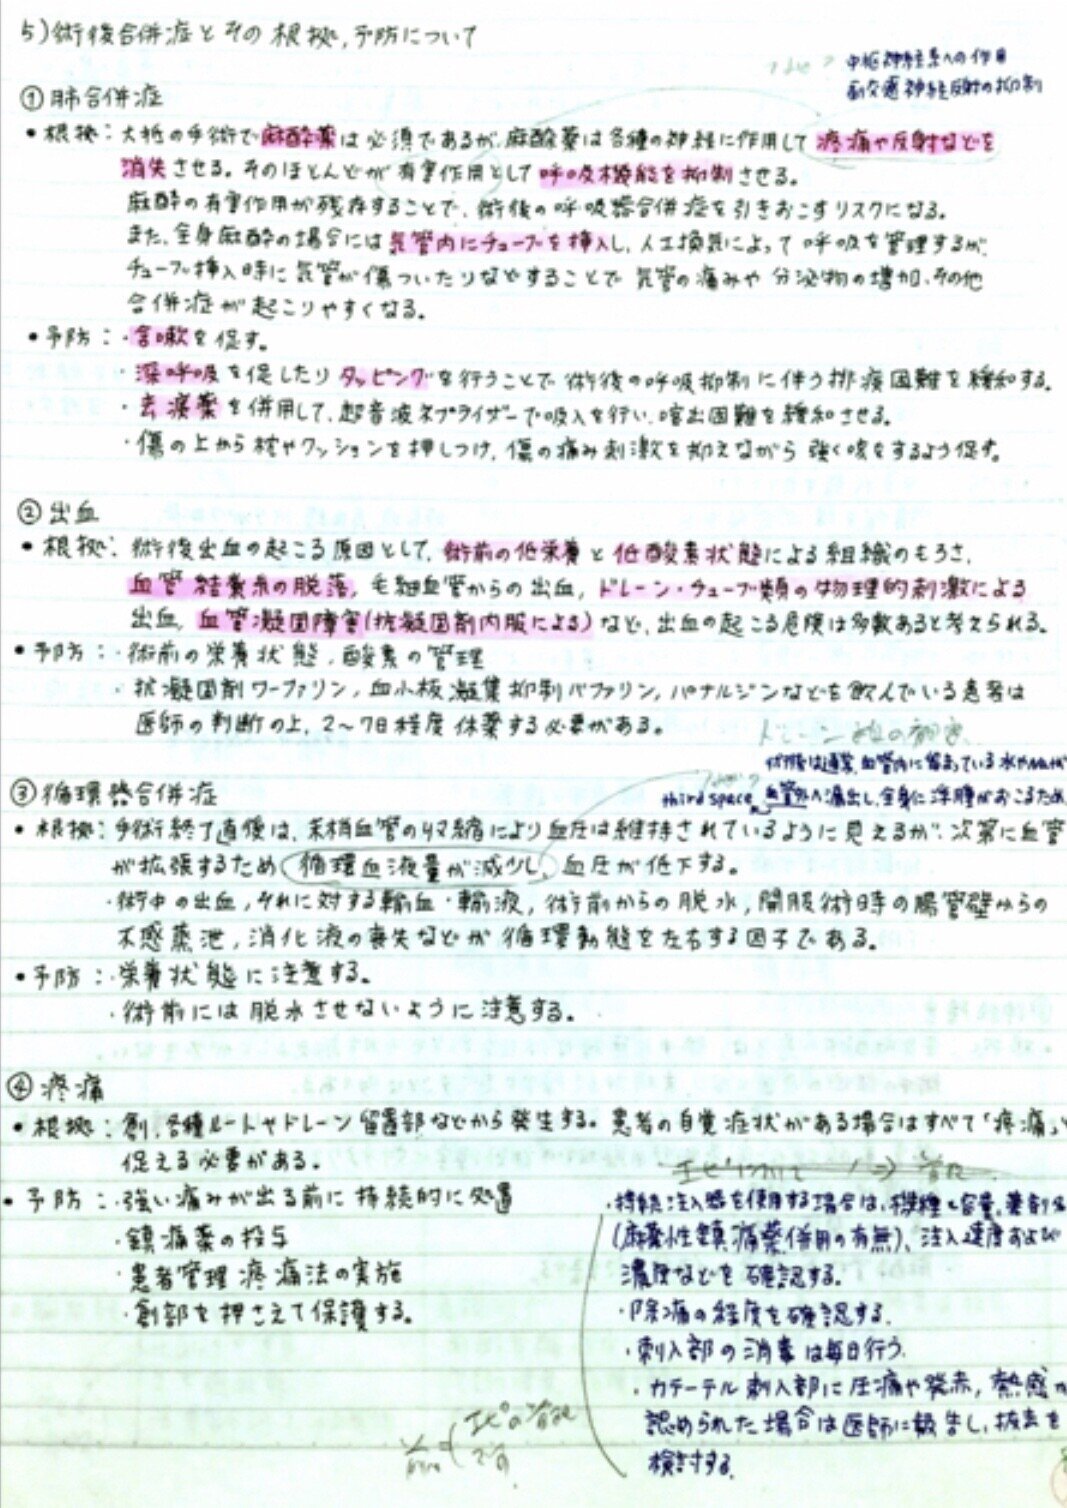 5)術後合併症とその根拠,予防について
中枢神経系への作用
副交感神経反射の抑制
①肺合併症
・根拠:大抵の手術で麻酔薬は必須であるが、麻酔薬は各種の神経に作用して疼痛や反射などを
消失させる。そのほとんどが有害作用として呼吸機能を抑制させる。
麻酔の有害作用が残存することで、術後の呼吸器合併症を引きおこすリスクになる。
また、全身麻酔の場合には気管内にチューブを挿入し、人工換気によって呼吸を管理するが、
チューブ挿入時に気管が傷ついたりなどすることで気管の痛みや分泌物の増加、その他
合併症が起こりやすくなる。
・予防:・含嗽を促す。
・深呼吸を促したりタッピングを行うことで術後の呼吸抑制に伴う排痰困難を緩和する。
・去痰薬を併用して、超音波ネブライザーで吸入を行い、喀出困難を緩和させる。
・傷の上から枕やクッションを押しつけ、傷の痛み刺激を抑えながら強く咳をするよう促す。
②出血
・根拠:術後出血の起こる原因として、術前の低栄養と低酸素状態による組織のもろさ、
血管結紮糸の脱落,毛細血管からの出血,ドレーン・チューブ類の物理的刺激による
出血,血管凝固障害(抗凝固剤内服による)など、出血の起こる危険は多数あると考えられる。
・予防:・術前の栄養状態,酸素の管理
・抗凝固剤ワーファリン,血小板凝集抑制バファリン,パナルジンなどを飲んでいる患者は
医師の判断の上,2～7日程度休薬する必要がある。
術後は通常、血管内に留まっている水やNaが
third spaceへ漏出し、全身に浮腫がおこるため
血管外
③循環器合併症
・根拠:手術終了直後は、末梢血管の収縮により血圧は維持されているように見えるが、次第に血管
が拡張するため循環血液量が減少し、血圧が低下する。
・術中の出血,それに対する輸血・輸液,術前からの脱水,開腹術時の腸管壁からの
不感蒸泄,消化液の喪失などが循環動態を左右する因子である。
・予防:・栄養状態に注意する。
・術前には脱水させないように注意する。
④疼痛
・根拠:創,各種ルートやドレーン留置部などから発生する。患者の自覚症状がある場合はすべて「疼痛」と
捉える必要がある。
・予防:・強い痛みが出る前に持続的に処置
・鎮痛薬の投与
・患者管理疼痛法の実施
・創部を押さえて保護する。
・持続注入器を使用する場合は、機種と容量、薬剤名
(麻薬性鎮痛薬併用の有無)、注入速度および
濃度などを確認する。
・除痛の程度を確認する.
・刺入部の消毒は毎日行う.
・カテーテル刺入部に圧痛や発赤,熱感が
認められた場合は医師に報告し,抜去を
検討する.